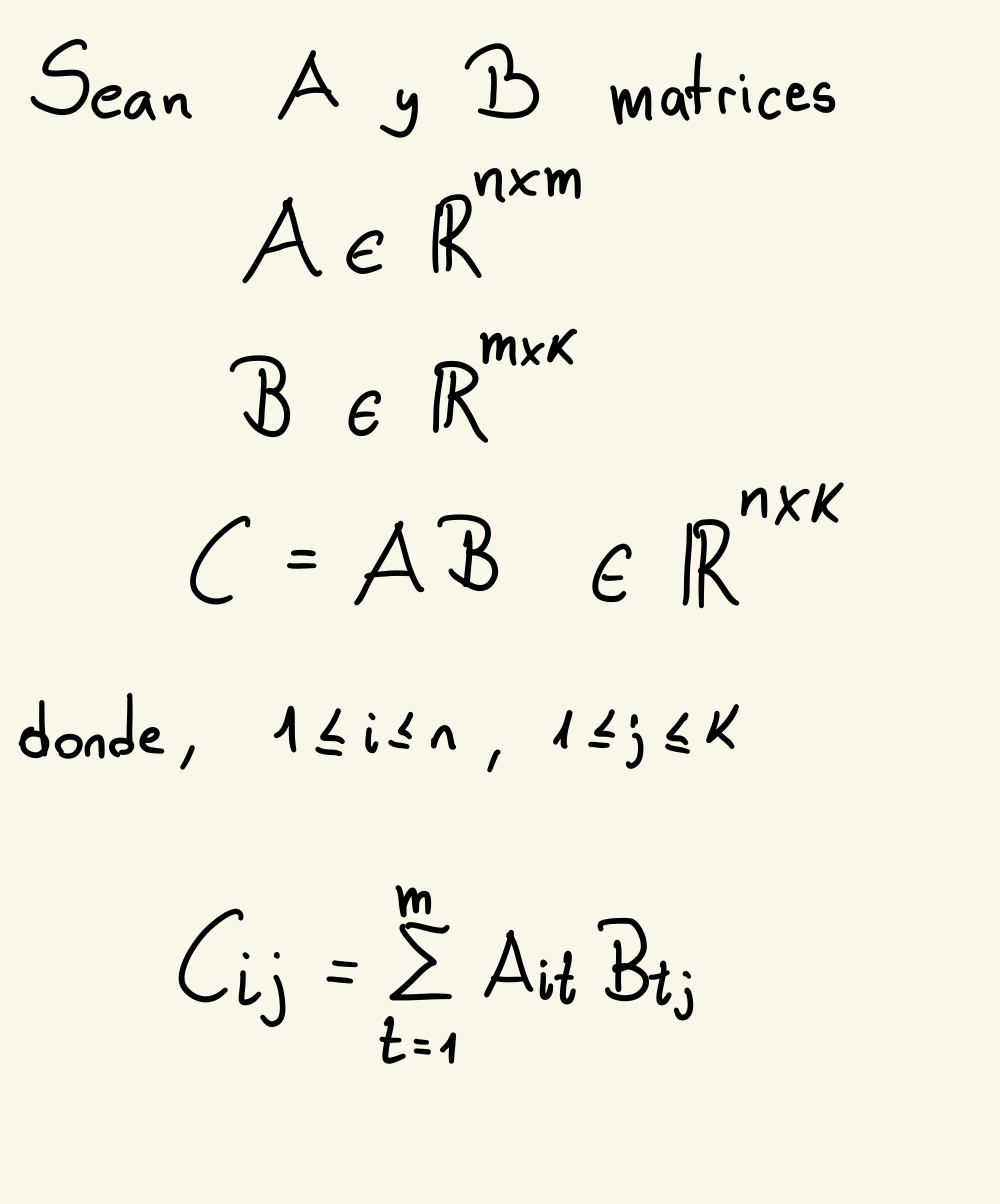 Sean A y B matrices
A ∈ ℝ^{n×m}
B ∈ ℝ^{m×k}
C = AB ∈ ℝ^{n×k}
donde, 1 ≤ i ≤ n, 1 ≤ j ≤ k
C_{ij} = ∑_{t=1}^{m} A_{it} B_{tj}